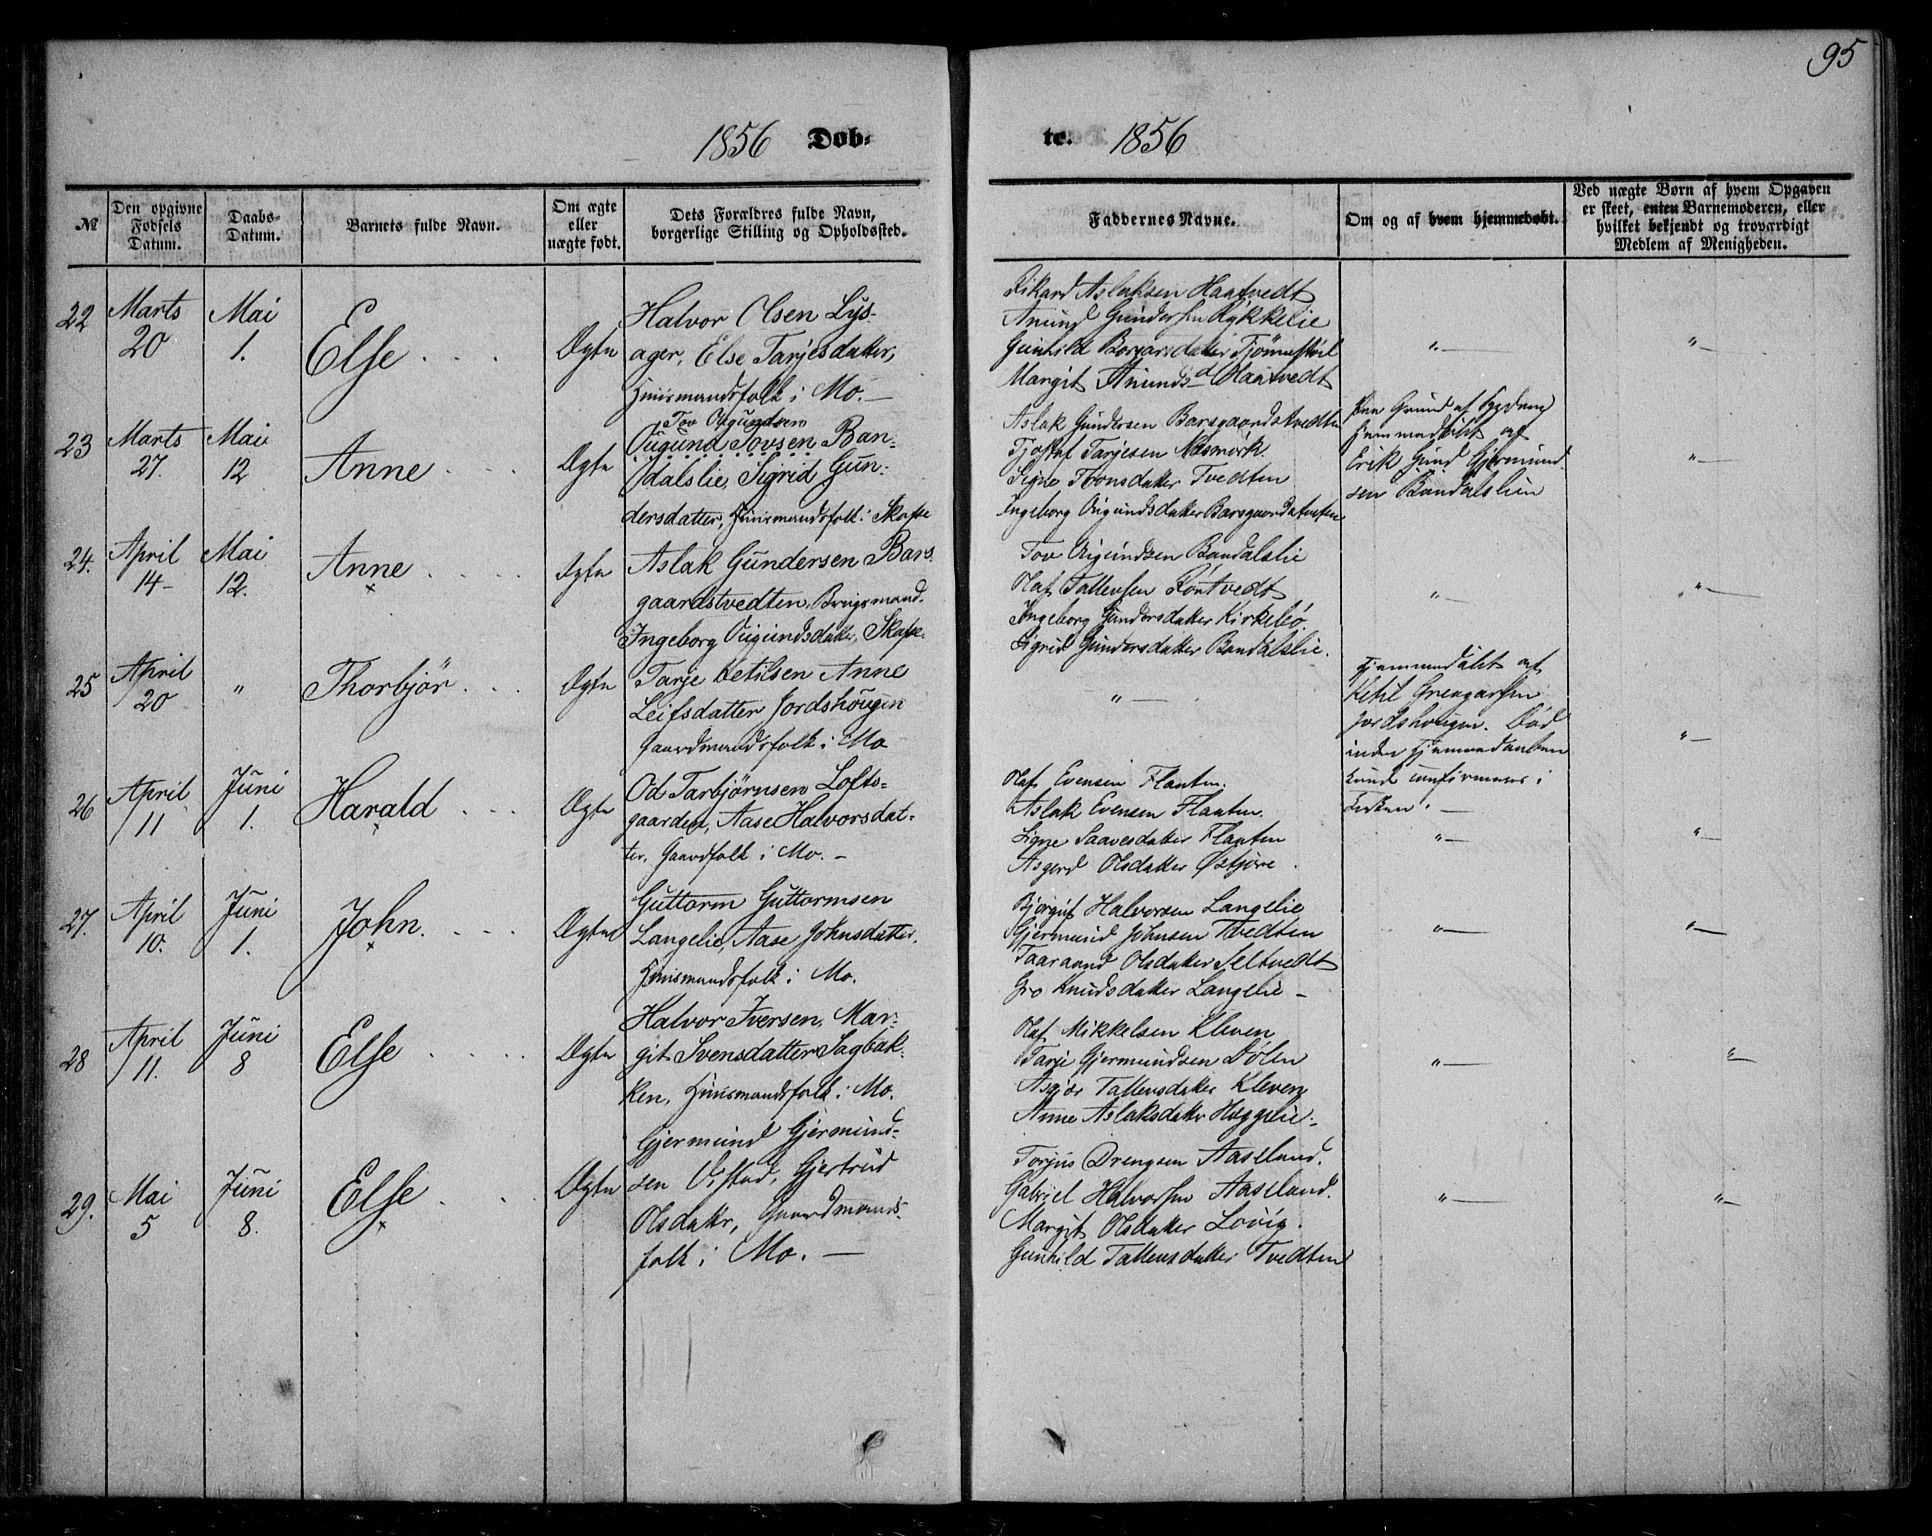 95
1856 Døb-
te. 1856
№
Den opgivne
Fødsels
Datum.
Daabs-
Datum.
Barnets fulde Navn.
Om ægte
eller
uægte født.
Dets Forældres fulde Navn,
borgerlige Stilling og Opholdssted.
Faddernes Navne.
Om og af hvem hjemmedøbt.
Ved uægte Børn af hvem Opgaven
er skeet, enten Barnemoderen, eller
hvilket bekjendt og troværdigt
Medlem af Menigheden.
22
Marts
20
Mai
1.
Else
Ægte
Halvor Olsen Lys-
ager, Else Tarjesdatter,
Huusmandsfolk i Mo. —
Rikard Aslaksen Haatvedt
Anund Gundersen Rykkelie
Gunhild Borgarsdatter
Margit Anunds d Haatvedt
" —
" —
23
Marts
27.
Mai
12
Anne
Ægte
Tov Ougundsen
Ougund Tovsen Ban-
dalslie, Sigrid Gun-
dersdatter, Huusmandsfolk i Skafse
Aslak Gundersen Barsgaardstvedten
Tjostaf Tarjesen Næsmørk.
Signe Tronsdatter Tvedten
Ingeborg Ougundsdatter Barsgaardstvedten
Paa Grund af Sygdom
hjemmedøbt af
Erik Gjermund
sen Bandalslien
" —
24.
April
14 -
Mai
12.
Anne
×
Ægte
Aslak Gundersen Bars-
gaardstvedten, Brugsmand.
Ingeborg Ougundsdatter, Skafse.
Tov Ougundsen Bandalslie
Olaf Tallevsen
Ingeborg Gundersdatter Kirkebø.
Sigrid Gundersdatter Bandalslie.
" —
" —
25
April
20
"
Thorbjør
Ægte
Tarje Ketilsen Anne
Leifsdatter Jordshougen
Gaardmandsfolk i Mo
" —
Hjemmedøbt af
Ketil Grengarsen
Jordshougen. Død
inden Hjemmedaaben
kunde i
Kirken. —
" —
26
April
11
Juni
1.
Harald
×
Ægte
Od Tarbjørnsen Lofts-
gaarden, Aase Halvorsdat-
ter, Gaardfolk i Mo. —
Olaf Evensen Flanten.
Aslak Evensen Flanten.
Signe Saavesdatter Flanten
Asgerd Olsdatter Østjøre.
" —
" —
27.
April
10.
Juni
1.
John.
×
Ægte
Guttorm Guttormsen
Langelie, Aase Johnsdatter,
Huusmandsfolk i Mo.
Bjørguf Halvorsen Langelie
Gjermund Johnsen Tvedten
Taaraand Olsdatter Seltvedt
Gro Knudsdatter Langelie —
" —
" —
28
April
11.
Juni
8
Else
Ægte
Halvor Iversen, Mar-
git Svensdatter Sagbak-
ken, Huusmandsfolk i Mo.
Olaf Mikkelsen Kleven
Tarje Gjermundsen Dølen
Asgjør Tallevsdatter Kleven
Anne Aslaksdatter Heggelie.
" —
" —
29.
Mai
5
Juni
8.
Else
×
Ægte
Gjermund Gjermund-
sen Ofstad, Gjertrud
Olsdatter, Gaardmands-
folk i Mo. —
Torjus Drengsen Aaseland.
Gabriel Halvorsen Aaseland.
Margit Olsdatter Lovig.
Gunhild Tallevsdatter Tvedten
" —
" —